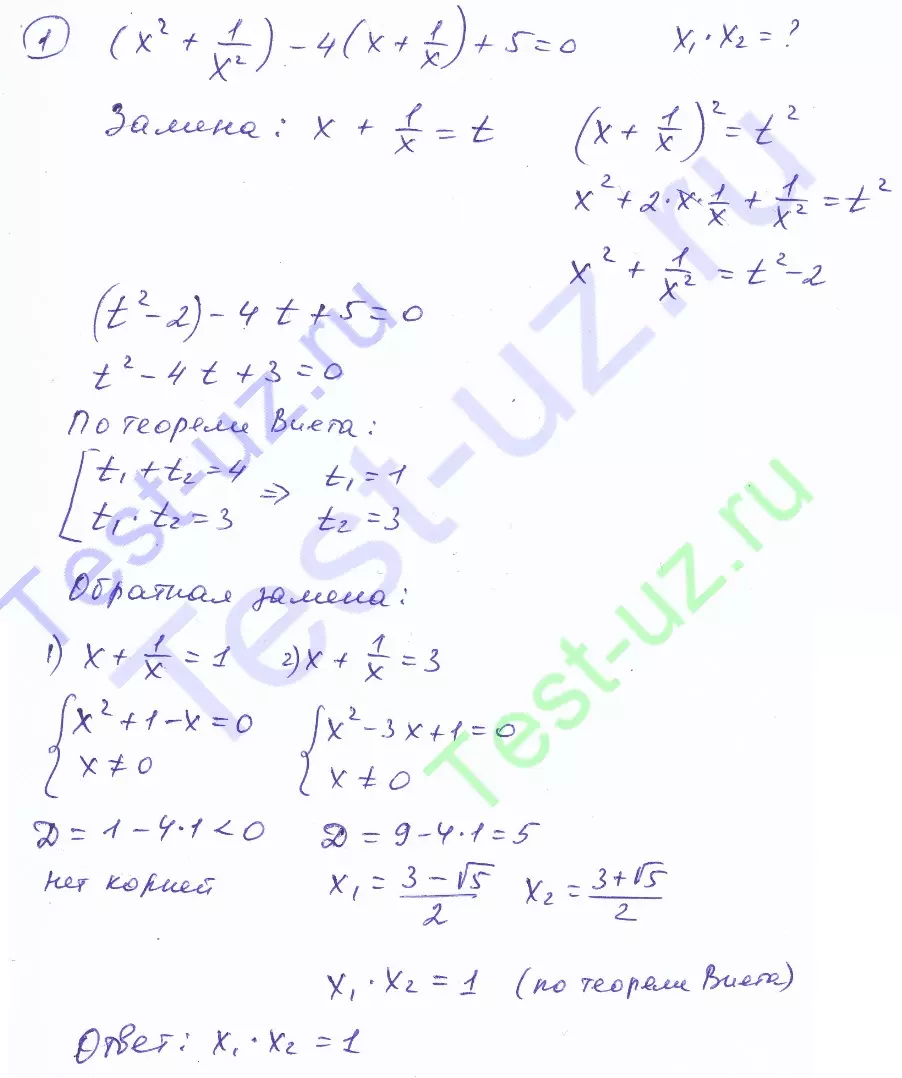 1 (x² + 1/x²) - 4(x + 1/x) + 5 = 0 x₁ · x₂ = ?
Замена: x + 1/x = t
(x + 1/x)² = t²
x² + 2 · x · 1/x + 1/x² = t²
x² + 1/x² = t² - 2
(t² - 2) - 4t + 5 = 0
t² - 4t + 3 = 0
По теореме Виета:
[ t₁ + t₂ = 4
t₁ · t₂ = 3
⇒ t₁ = 1
t₂ = 3
Обратная замена:
1) x + 1/x = 1 2) x + 1/x = 3
{ x² + 1 - x = 0
x ≠ 0
{ x² - 3x + 1 = 0
x ≠ 0
D = 1 - 4 · 1 < 0
нет корней
D = 9 - 4 · 1 = 5
x₁ = (3 - √5)/2 x₂ = (3 + √5)/2
x₁ · x₂ = 1 (по теореме Виета)
Ответ: x₁ · x₂ = 1
Test-uz.ru
Test-uz.ru
Test-uz.ru